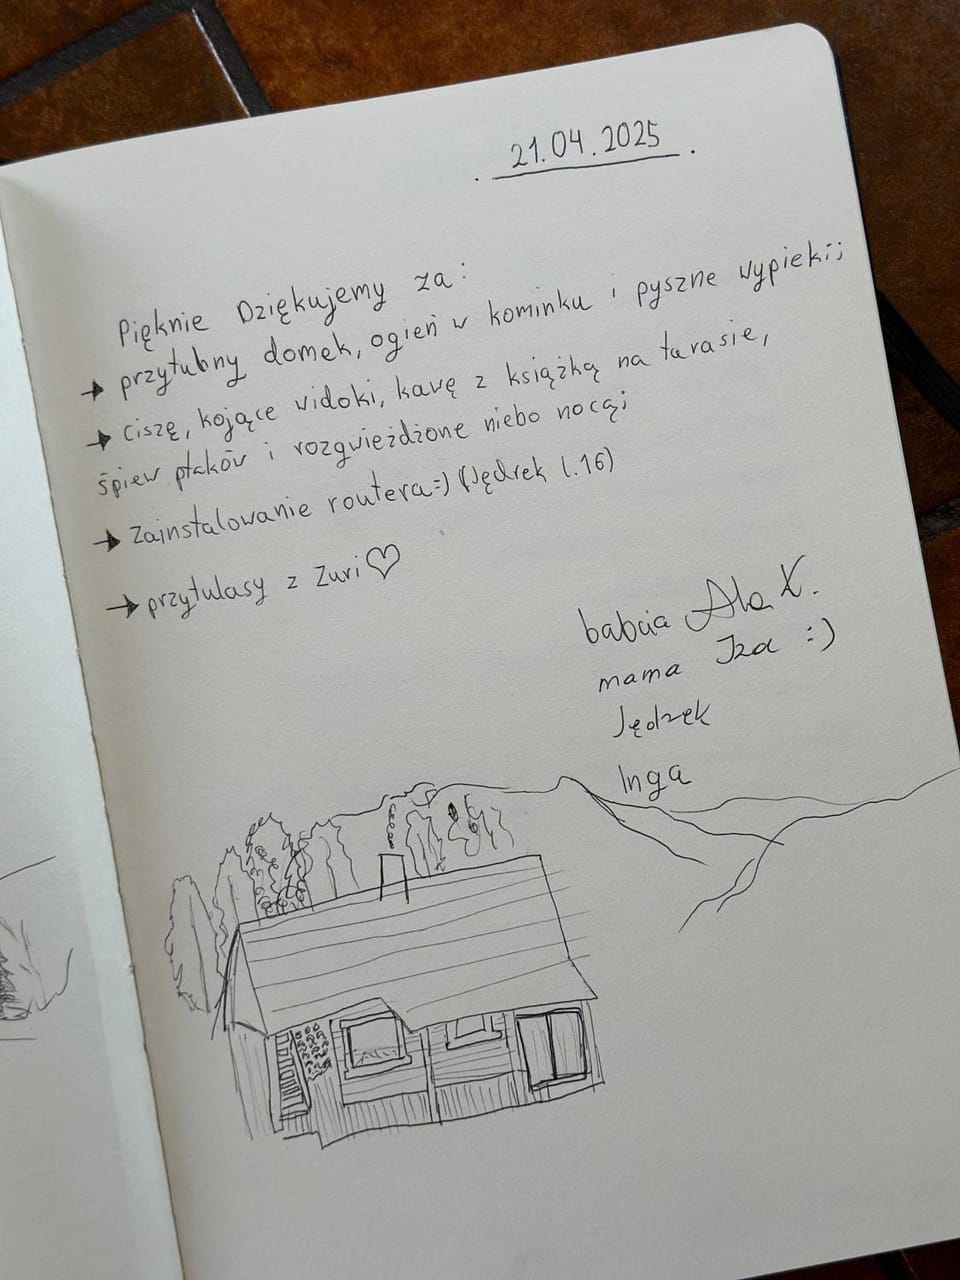 21.04.2025
Pięknie Dziękujemy za:
→ przytulny domek, ogień w kominku i pyszne wypieki;
→ ciszę, kojące widoki, kawę z książką na tarasie,
śpiew ptaków i rozgwieżdżone niebo nocą;
→ zainstalowanie routera=) (Jędrek l.16)
→ przytulasy z Zuri♡
babcia Ala K.
mama Iza :)
Jędrek
Inga